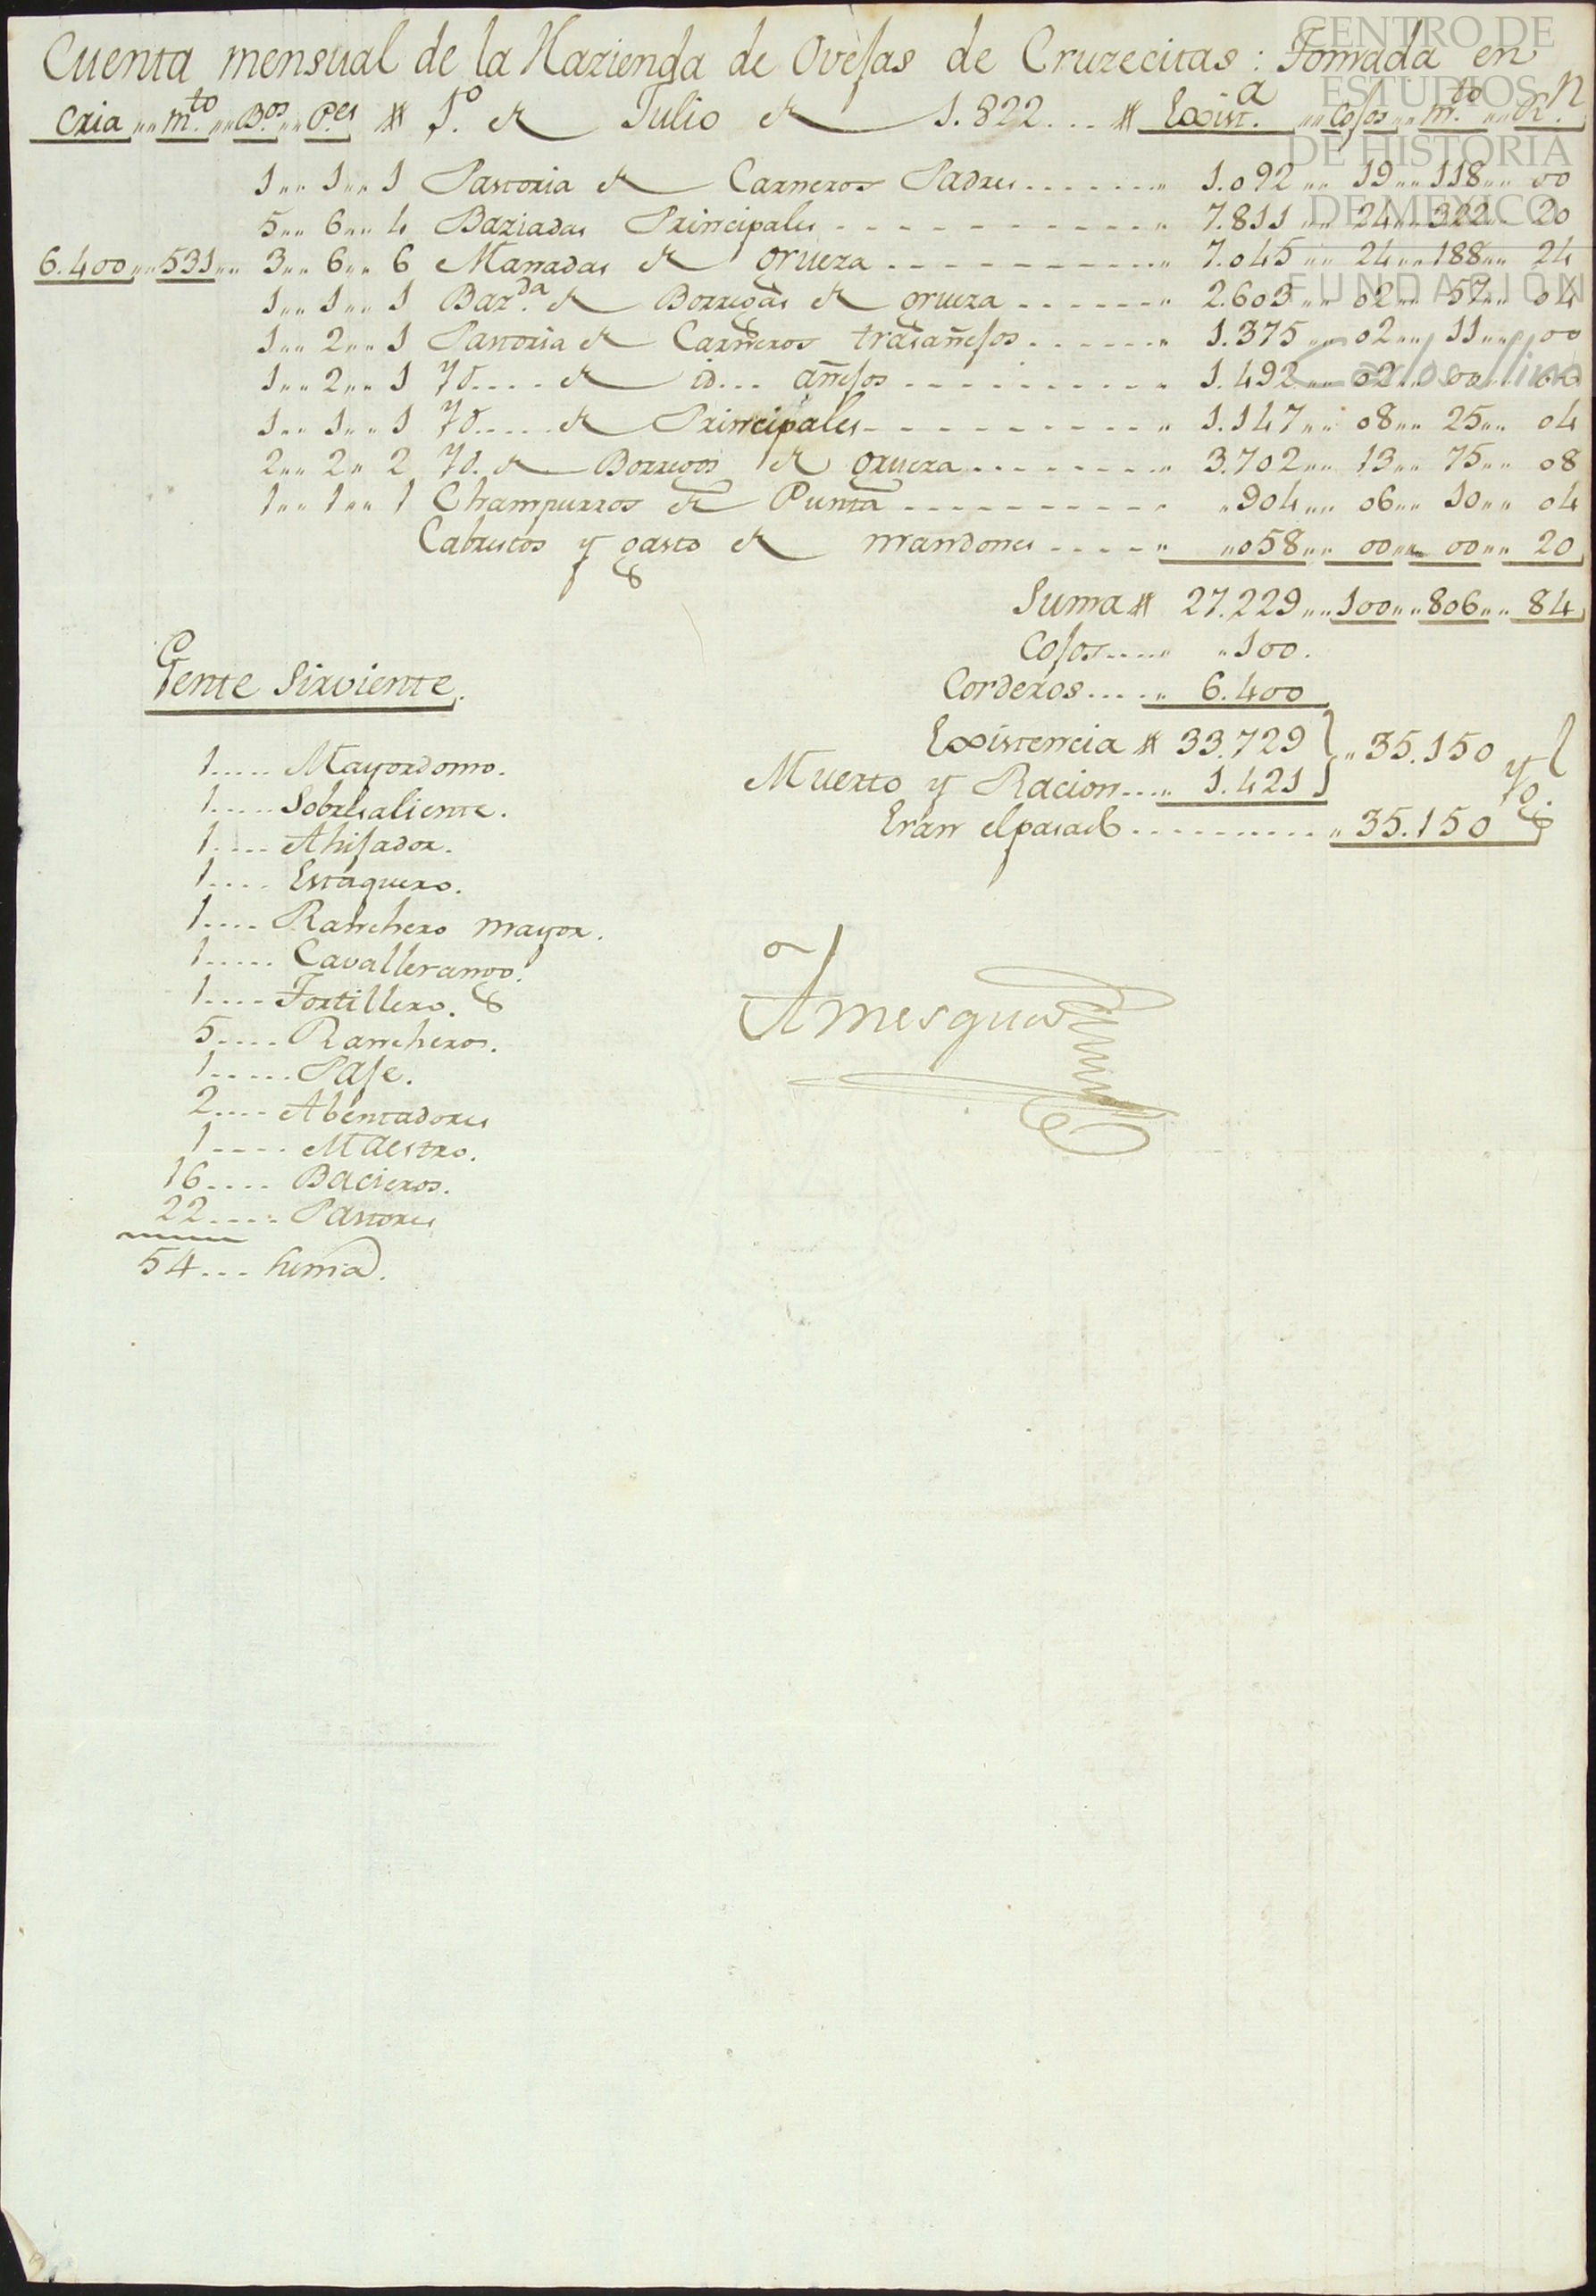 Cuenta mensual de la Hazienda de Ovejas de Cruzecitas: Tomada en
Cria,,,,m.to,,,,B.os,,,,P.es # 1.º de Julio de 1.822... # Exist.a ,,,,Cojos,,,,m.to,,,,R.n
1,,,,1,,,,1 Pastoria de Carneros Padres.......,, 1.092,,,,19,,,,118,,,,00
5,,,,6,,,,4 Baziadas Principales - - - - - - - - - - ,, 7.811,,,,24,,,,322,,,,20
6.400,,,,531,,,,3,,,,6,,,,6 Manadas de grueza - - - - - - - - - ,, 7.045,,,,24,,,,188,,,,24
1,,,,1,,,,1 Baz.da de Borregas de grueza - - - - - - ,, 2.603,,,,02,,,,57,,,,04
1,,,,2,,,,1 Pastoria de Carneros trasañejos - - - - - - ,, 1.375,,,,02,,,,11,,,,00
1,,,,2,,,,1 Yd..... de id... añejos - - - - - - - - - - ,, 1.492,,,,02,,,,00,,,,00
1,,,,1,,,,1 Yd..... de Principales - - - - - - - - - - ,, 1.147,,,,08,,,,25,,,,04
2,,,,2,,2 Yd. de Borregos de grueza - - - - - - - ,, 3.702,,,,13,,,,75,,,,08
1,,,,1,,,,1 Champurros de Punta - - - - - - - - - - ,, ,,904,,,,06,,,,10,,,,04
Cabrestos y gasto de mandones - - - - - ,, ,,058,,,,00,,,,00,,,,20
Suma # 27.229,,,,100,,,,806,,,,84
Cojos.....,, ,,100.
Gente Sirviente.
Corderos.....,, 6.400
Existencia # 33.729 } ,,35.150
Muerto y Racion....,, 1.421
Eran el pasado - - - - - - - - - - ,,35.150
1..... Mayordomo.
1..... Sobresaliente.
1.... Ahijador.
1.... Estaquero.
1.... Ranchero mayor.
1..... Cavallerango.
1.... Tortillero.
5..... Rancheros.
1...... Paje.
2.... Abentadores
1..... Maestro.
16.... Bacieros.
22..... Pastores
54... suma.
Amesqua
CENTRO DE
ESTUDIOS
DE HISTORIA
DE MEXICO
FUNDACIÓN
Carlos Slim